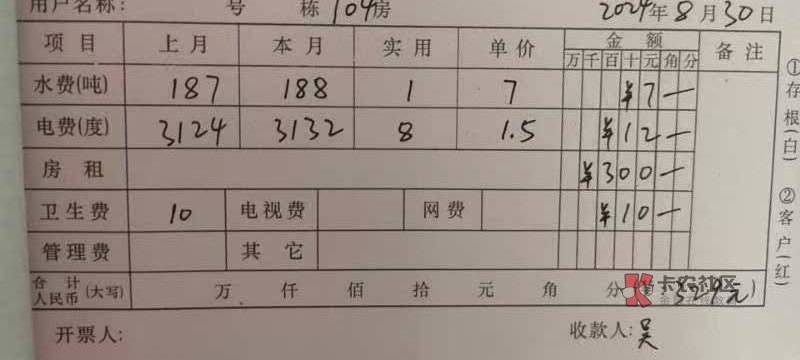 用户名称: 号 栋 104房 2024年8月30日
项目 上月 本月 实用 单价 金额 备注
万 千 百 十 元 角 分
水费(吨) 187 188 1 7 ¥7—
电费(度) 3124 3132 8 1.5 ¥12—
房租 ¥300—
卫生费 10 电视费 网费 ¥10—
管理费 其它
合计人民币(大写) 万 仟 佰 拾 元 角 分(¥: 329元)
开票人: 收款人: 吴
①存根(白) ②客户(红)
卡农社区